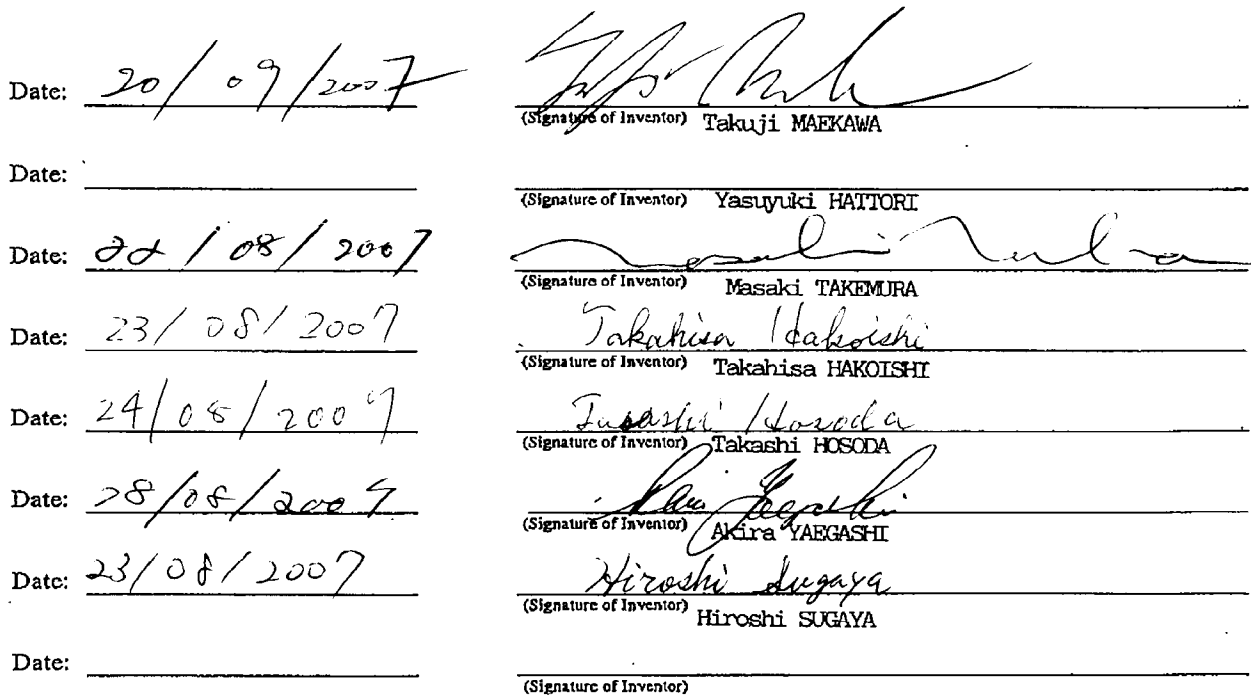 Date: 20/09/2007
(Signature of Inventor) Takuji MAEKAWA
Date:
(Signature of Inventor) Yasuyuki HATTORI
Date: 22/08/2007
(Signature of Inventor) Masaki TAKEMURA
Date: 23/08/2007 Takahisa Hakoishi
(Signature of Inventor) Takahisa HAKOISHI
Date: 24/08/2007 Hosoda
(Signature of Inventor) Takashi HOSODA
Date: 28/08/2007 Yaegashi
(Signature of Inventor) Akira YAEGASHI
Date: 23/08/2007 Hiroshi Sugaya
(Signature of Inventor) Hiroshi SUGAYA
Date:
(Signature of Inventor)